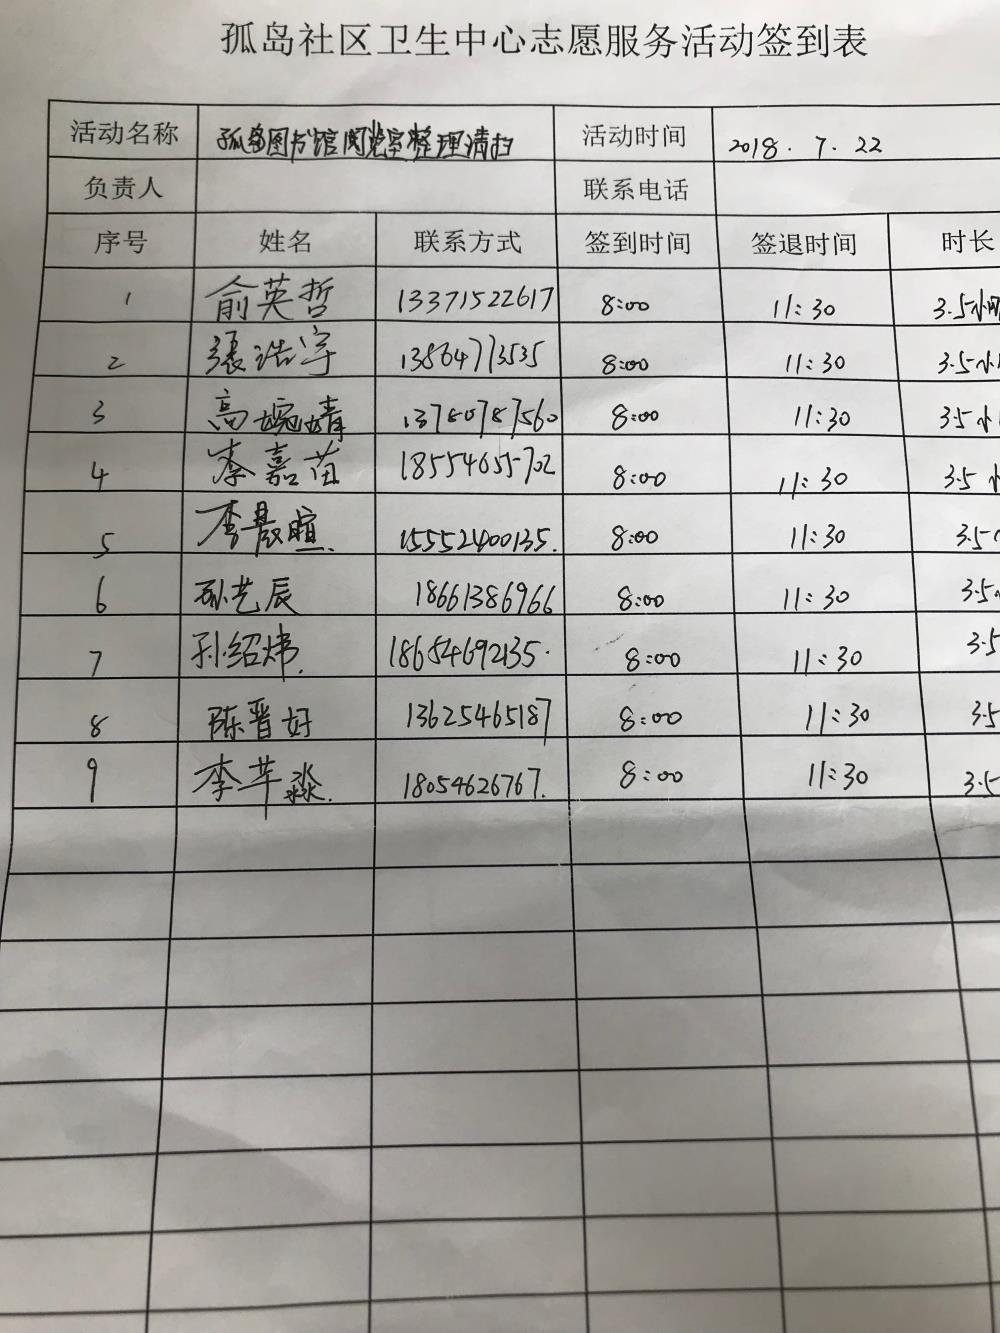 孤岛社区卫生中心志愿服务活动签到表
活动名称 孤岛图书馆阅览室整理清扫 活动时间 2018.7.22
负责人 联系电话
序号 姓名 联系方式 签到时间 签退时间 时长
1 俞英哲 13371522617 8:00 11:30 3.5小时
2 張浩宇 13864773535 8:00 11:30 3.5小
3 高婉婧 13780787560 8:00 11:30 3.5小
4 李嘉苗 18554655702 8:00 11:30 3.5小
5 李晟暄. 15552400135. 8:00 11:30 3.5
6 孙艺辰 18661386966 8:00 11:30 3.5
7 孙绍炜. 18654692135. 8:00 11:30 3.5
8 陈晋好 13625465187 8:00 11:30 3.5
9 李芊淼. 18054626767. 8:00 11:30 3.5